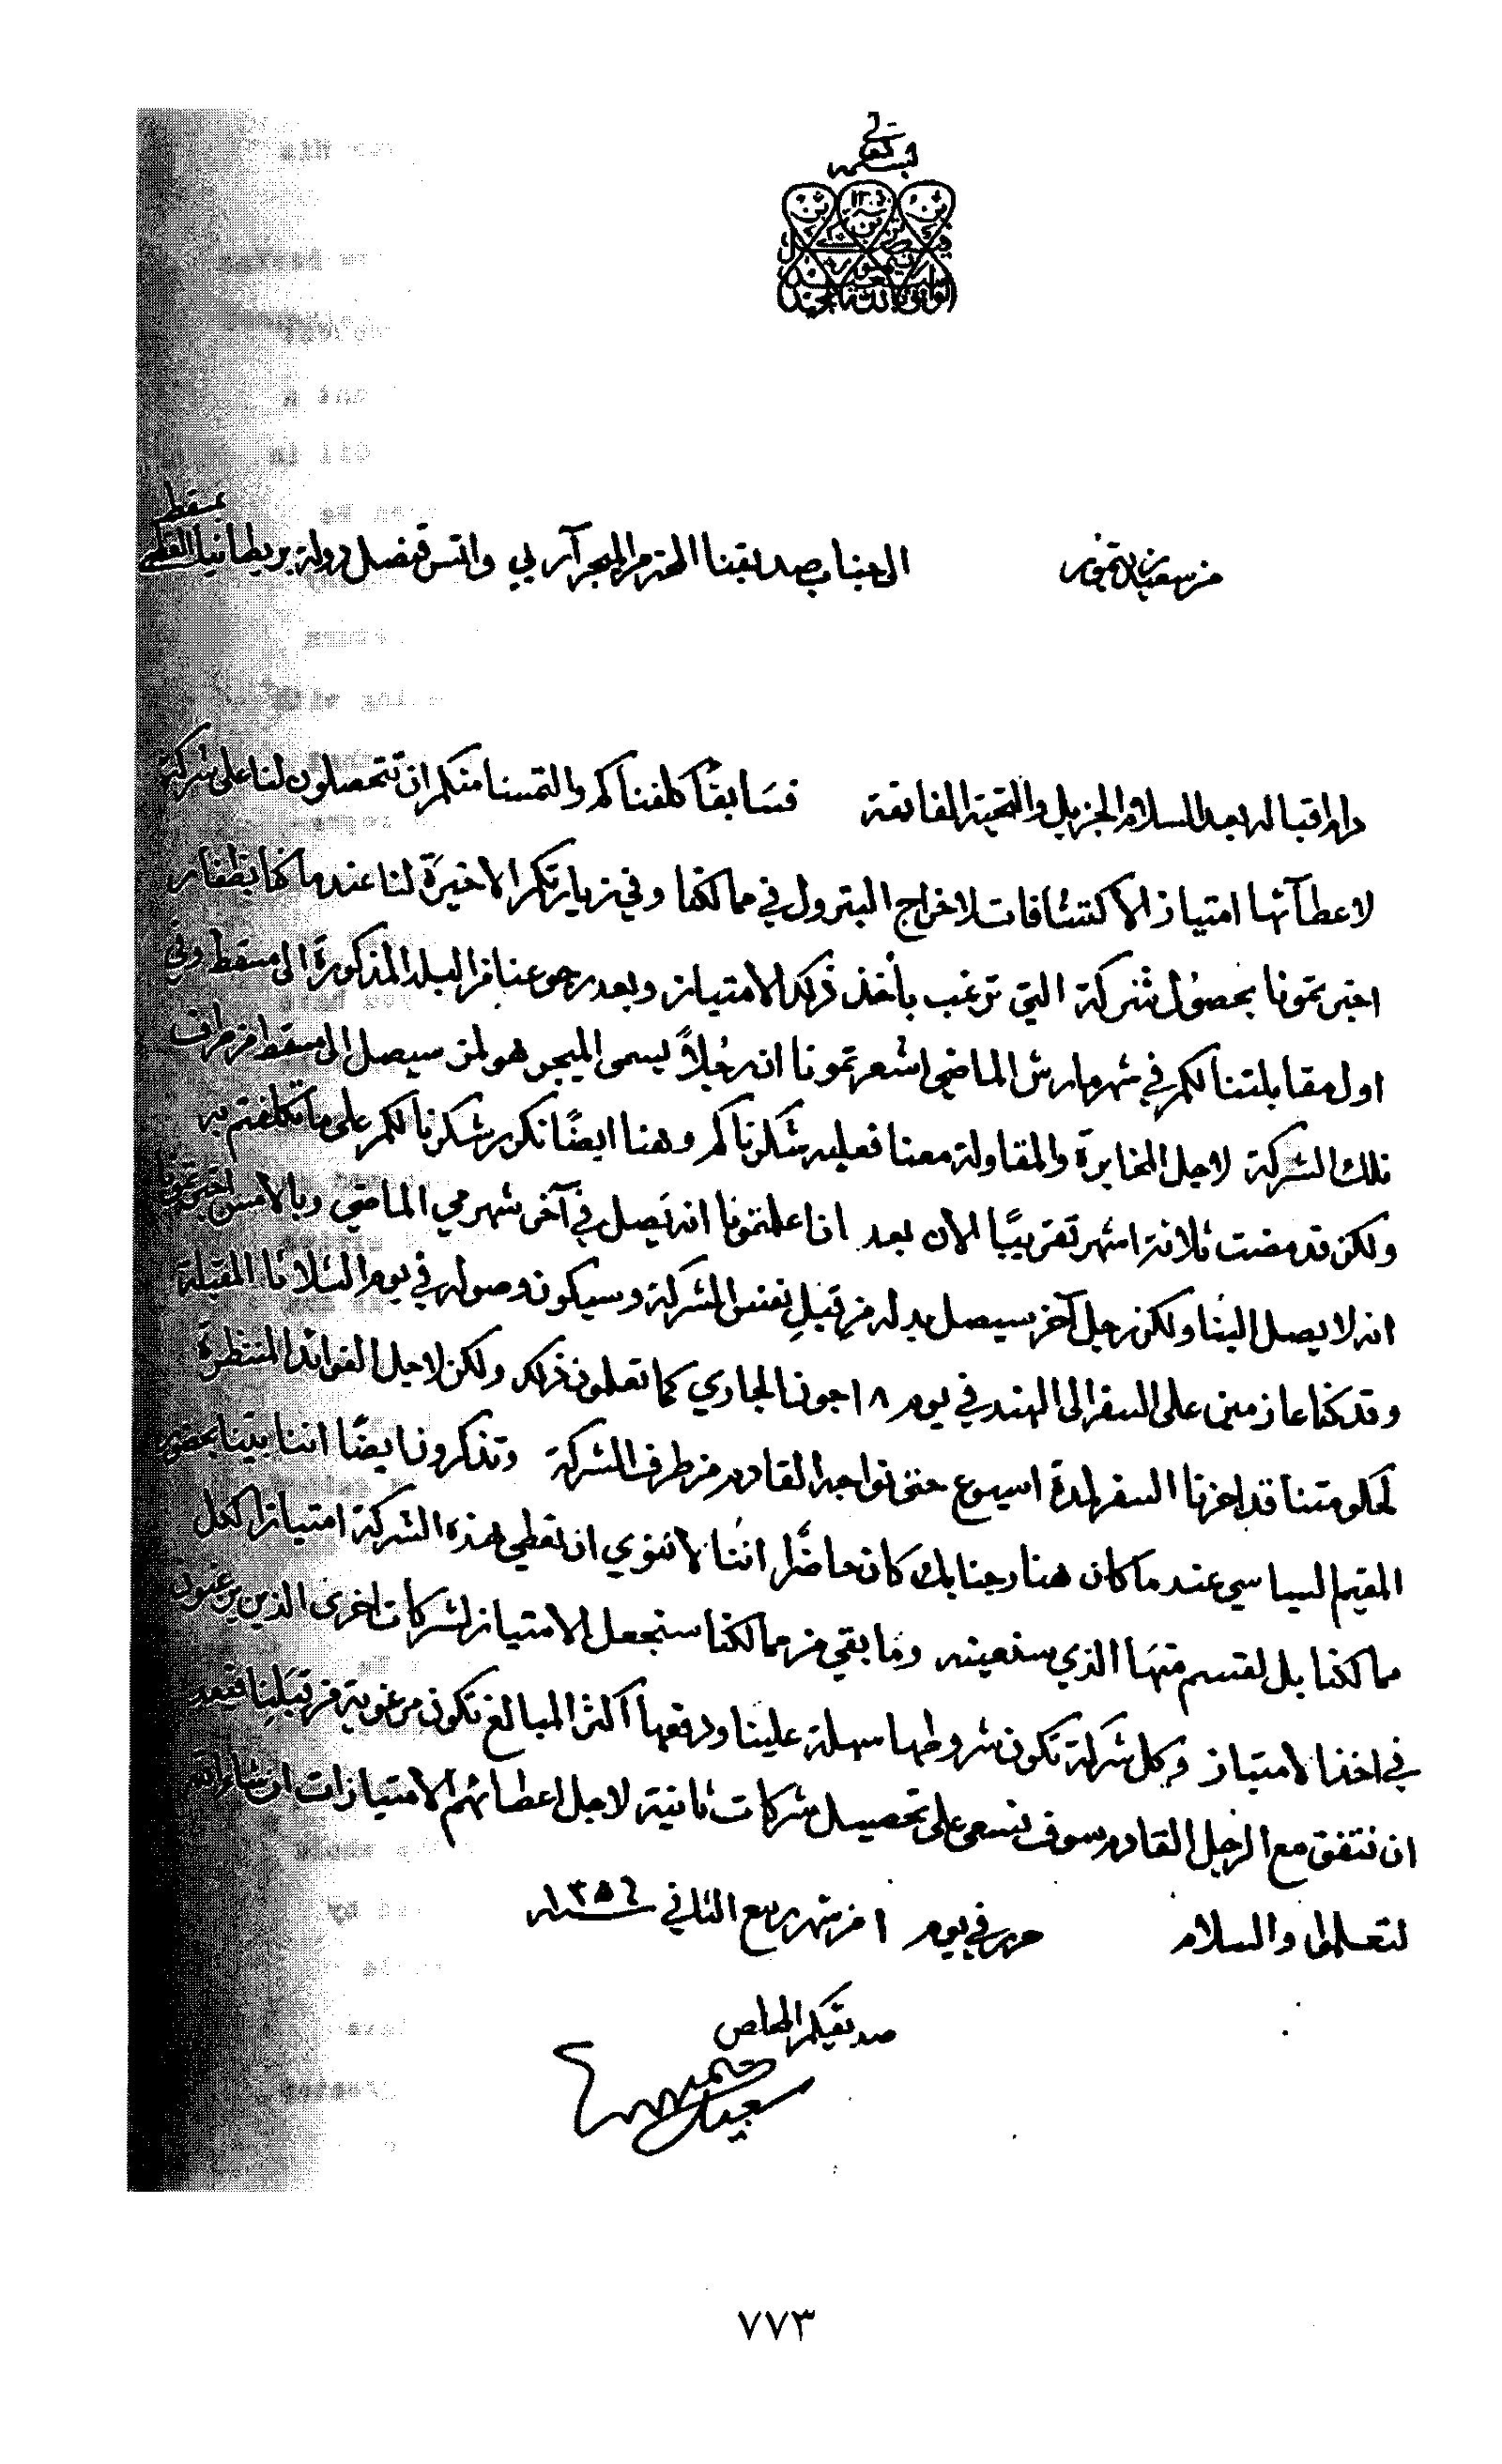 بسمه تعالى
١٣٠٦
من سعيد بن تيمور الى جناب صديقنا المحترم الميجر آر بي واتس قنصل دولة بريطانيا العظمى
بمسقط
دام اقباله بعد السلام الجزيل والتحية الفائقة فسَابقًا كلفناكم والتمسنا منكم ان تتحصلون لنا على شركة
لاعطآئها امتياز الاكتشافات لاخراج البترول في ممالكنا وفي زيارتكم الاخيرة لنا عندما كنا بظفار
اخبرتمونا بحصول شركة التي ترغب بأخذ ذلك الامتياز وبعد رجوعنا من البلد المذكورة الى مسقط وفي
اول مقابلتنا لكم في شهر مارش الماضي اشعرتمونا ان رجُلاً يسمى الميجر هولمز سيصل الى مسقط من طرف
تلك الشركة لاجل المخابرة والمقاولة معنا فعليه شكرناكم وهنا ايضًا نكرر شكرنا لكم على ما تكلفتم به
ولكن قد مضت ثلاثة اشهر تقريبًا الآن بعد ان اعلمتمونا انه يَصل في آخر شهر مي الماضي وبالامس اخبرتمونا
انه لا يصل الينا ولكن رجل آخر سيصل بدله من قبلِ نفس الشركة وسيكون وصوله في يوم الثلاثا المقبلة
وقد كنا عازمين على السفر الى الهند في يوم ١٨ جون الجاري كما تعلمون ذلك ولكن لاجل الفوائد المنتظرة
لحكومتنا قد اخرنا السفر لمدة اسبوع حتى نواجه القادم من طرف الشركة وتذكرون ايضًا اننا بيّنا بحضور
المقيم السياسي عندما كان هنا وجنابك كان حاضرًا اننا لا ننوي ان نعطي هذه الشركة امتيازا لكل
ممالكنا بل لقسم منهَا الذي سنعينه وما بقي من ممالكنا سنجعل الامتياز لشركات اخرى الذين يرغبون
في اخذ الامتياز وكل شركة تكون شروطها سهلة علينا ودفعها اكثر المبالغ تكون مرغوبة من قبَلِنا فبعد
ان نتفق مع الرجل القادم سوف نسعى على تحصيل شركات ثانية لاجل اعطائهم الامتيازات ان شاء الله
لتعلموا والسلام حرر في يوم ١ من شهر ربيع الثاني سنة ١٣٥٦
صديقكم المخلص
سعيد بن تيمور
٧٧٣